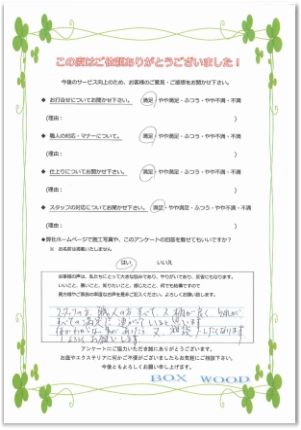 この度はご依頼ありがとうございました！
今後のサービス向上のため、お客様のご意見・ご感想をお聞かせ下さい。
◆ お打合せについてお聞かせ下さい。 満足・やや満足・ふつう・やや不満・不満
(理由： )
◆ 職人の対応・マナーについて。 満足・やや満足・ふつう・やや不満・不満
(理由： )
◆ 仕上りについてお聞かせ下さい。 満足・やや満足・ふつう・やや不満・不満
(理由： )
◆ スタッフの対応についてお聞かせ下さい。 満足・やや満足・ふつう・やや不満・不満
(理由： )
◆弊社ホームページで施工写真や、このアンケートの回答を載せてもいいですか？
※ お名前は掲載いたしません
はい いいえ
お客様の声は、私たちにとって大きな励みであり、やりがいであり、反省にもなります。
いいこと、悪いこと、気づきたいこと、感じたこと、何でも結構ですので
皆方様やご家族の率直なお声を是非ご記入ください。よろしくお願い致します。
スタッフの方、職人の方 すべて、人柄が良く
すべての満足に 思います
よろしくお願いします
アンケートにご協力いただき誠にありがとうございます。
お庭やエクステリアに何かご不便がございましたらお気軽にご相談下さい。
今後ともよろしくお願い申し上げます。
BOX WOOD